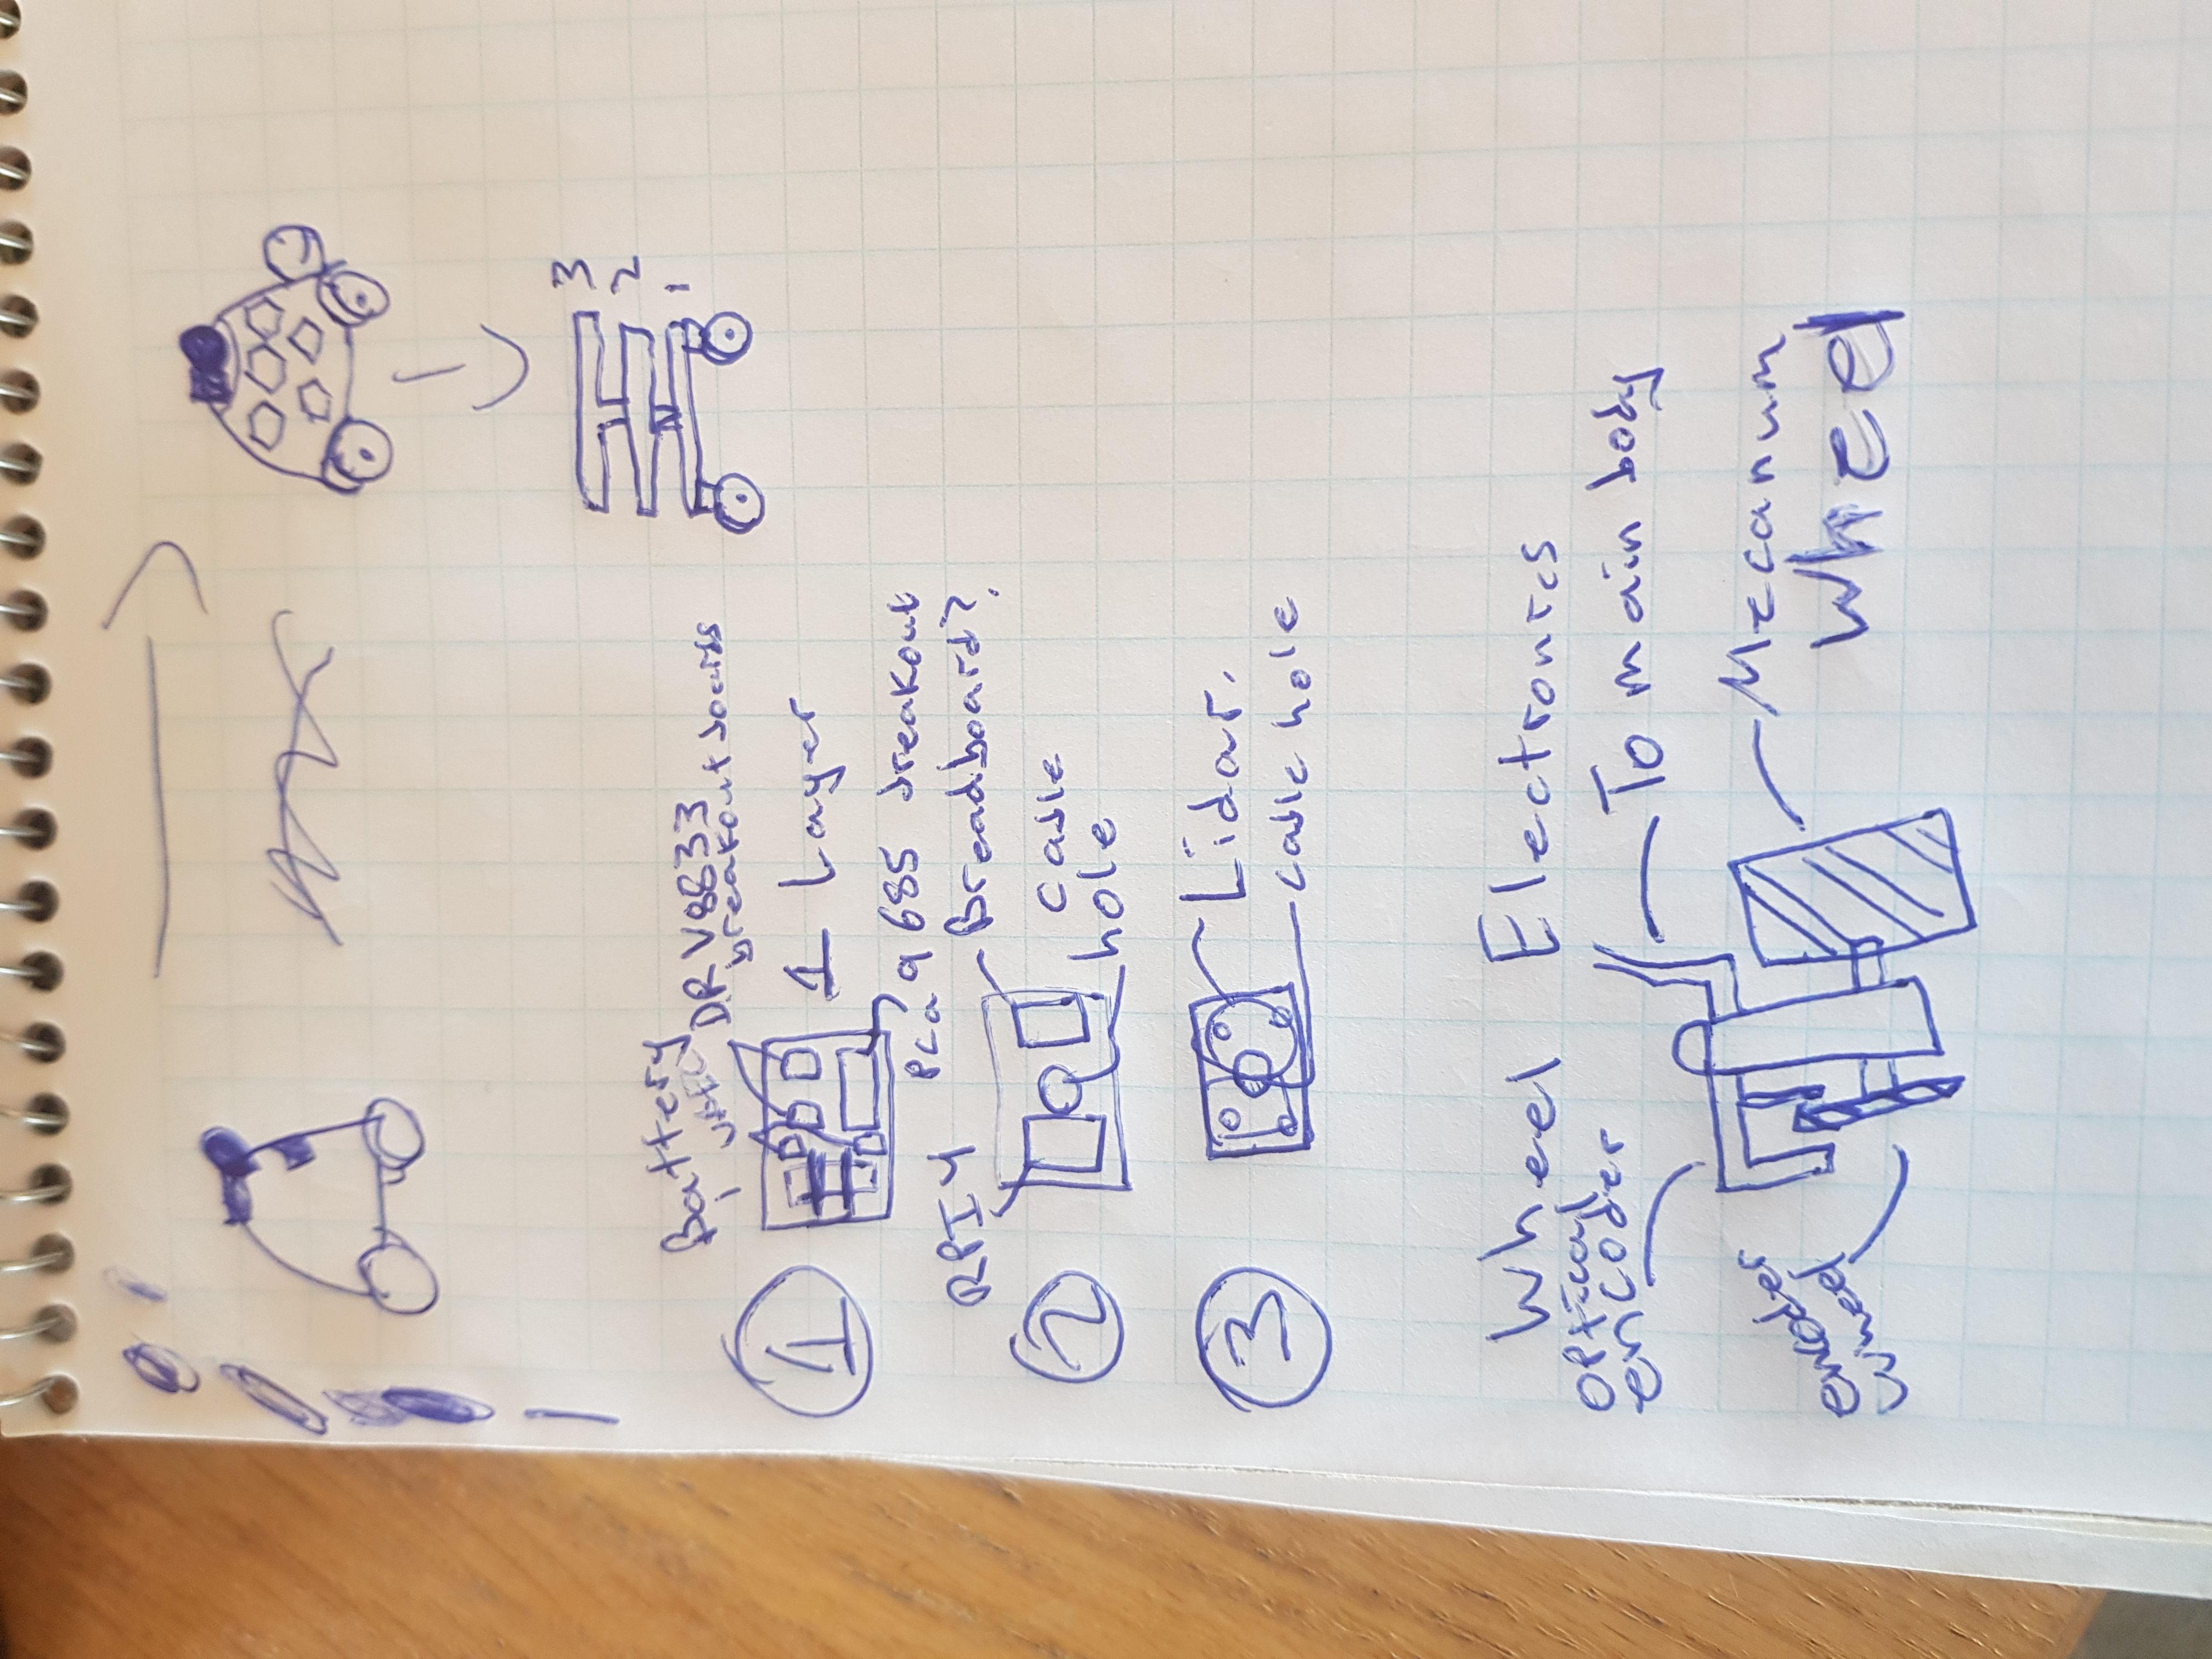 3
2
1
Battery
UBEC
DRV8833
breakout boards
1
1 Layer
PCa 9685 breakout
RPI4
Breadboard?
2
cable
hole
3
Lidar.
cable hole
Wheel Electronics
Optical
encoder
To main body
encoder
wheel
Mecanum
Wheel